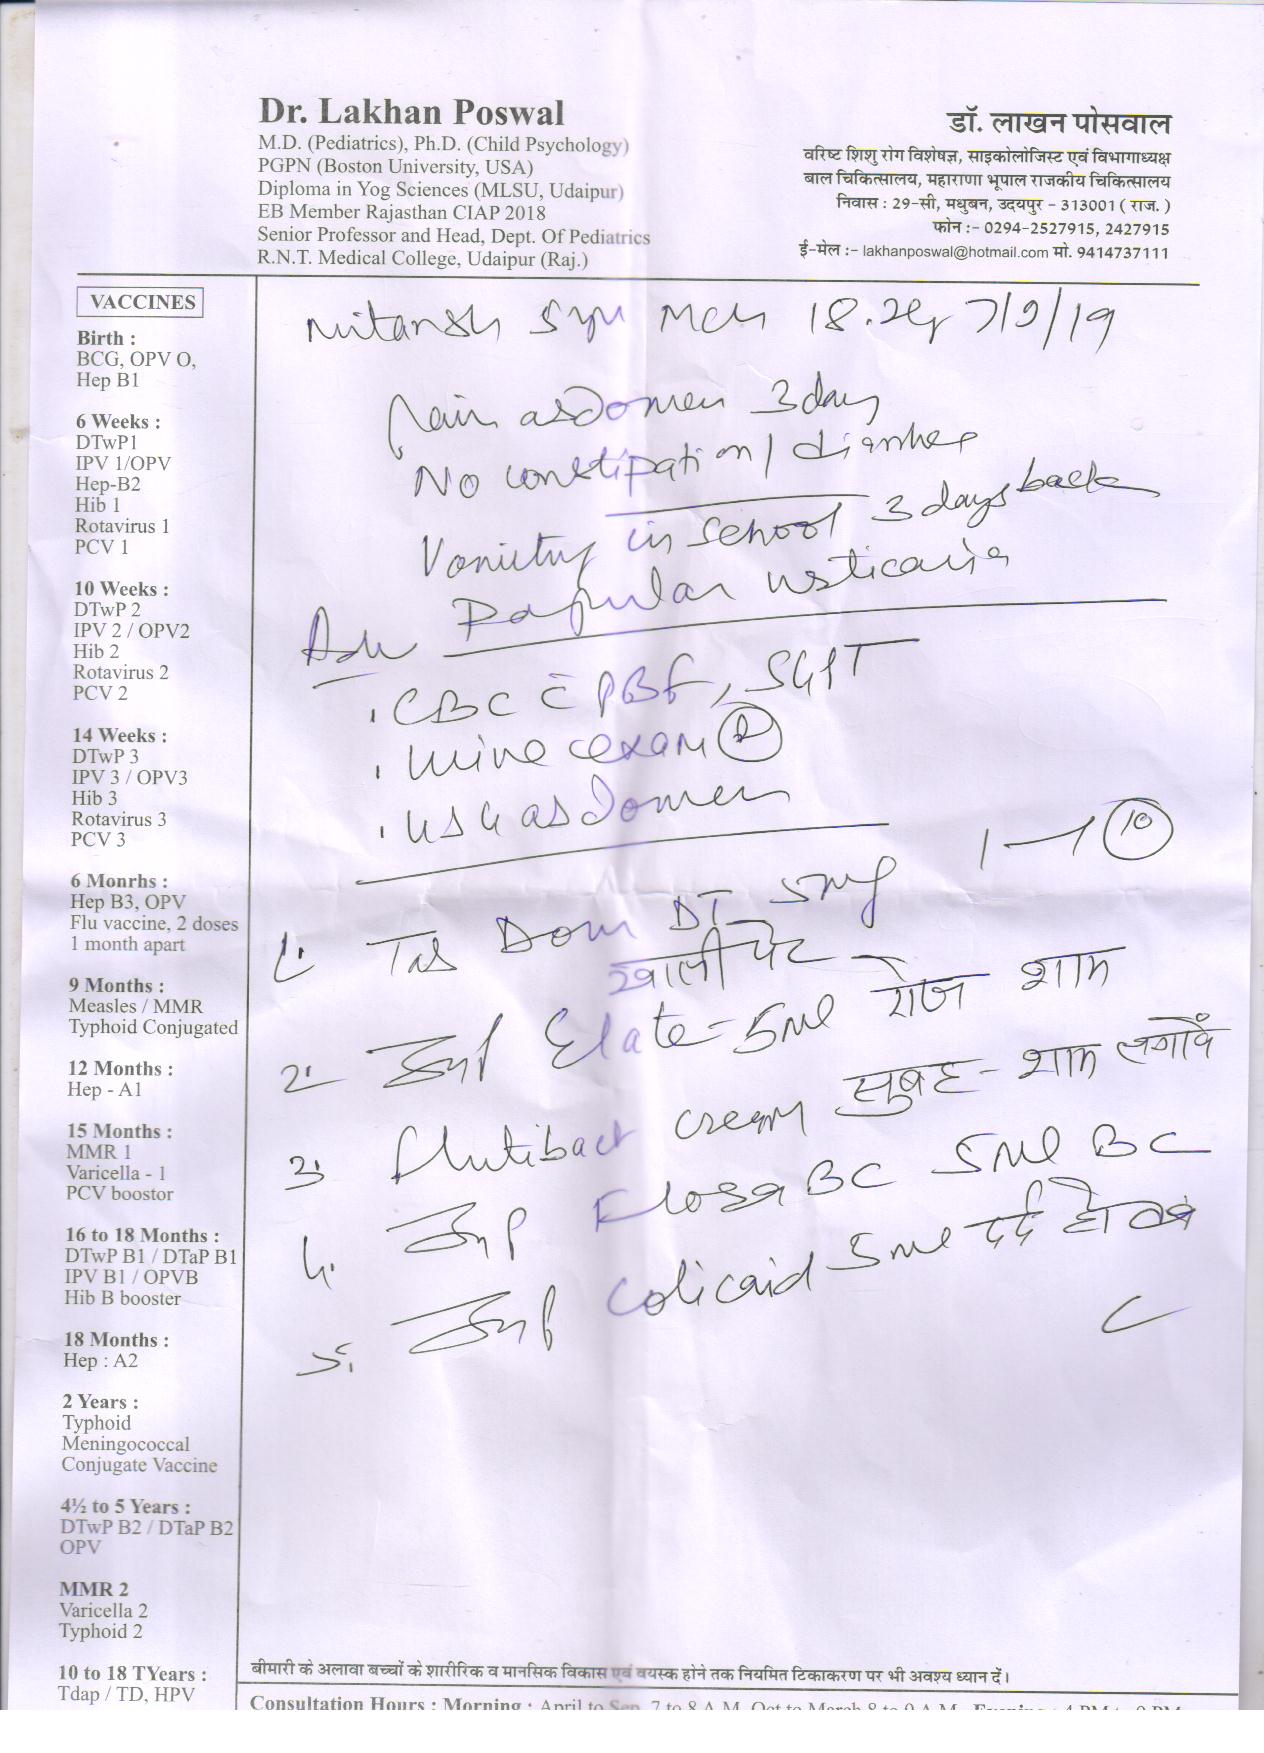 Dr. Lakhan Poswal
M.D. (Pediatrics), Ph.D. (Child Psychology)
PGPN (Boston University, USA)
Diploma in Yog Sciences (MLSU, Udaipur)
EB Member Rajasthan CIAP 2018
Senior Professor and Head, Dept. Of Pediatrics
R.N.T. Medical College, Udaipur (Raj.)
डॉ. लाखन पोसवाल
वरिष्ट शिशु रोग विशेषज्ञ, साइकोलोजिस्ट एवं विभागाध्यक्ष
बाल चिकित्सालय, महाराणा भूपाल राजकीय चिकित्सालय
निवास : 29-सी, मधुबन, उदयपुर - 313001 ( राज. )
फोन :- 0294-2527915, 2427915
ई-मेल :- lakhanposwal@hotmail.com मो. 9414737111
VACCINES
Birth :
BCG, OPV O,
Hep B1
6 Weeks :
DTwP1
IPV 1/OPV
Hep-B2
Hib 1
Rotavirus 1
PCV 1
10 Weeks :
DTwP 2
IPV 2 / OPV2
Hib 2
Rotavirus 2
PCV 2
14 Weeks :
DTwP 3
IPV 3 / OPV3
Hib 3
Rotavirus 3
PCV 3
6 Monrhs :
Hep B3, OPV
Flu vaccine, 2 doses
1 month apart
9 Months :
Measles / MMR
Typhoid Conjugated
12 Months :
Hep - A1
15 Months :
MMR 1
Varicella - 1
PCV boostor
16 to 18 Months :
DTwP B1 / DTaP B1
IPV B1 / OPVB
Hib B booster
18 Months :
Hep : A2
2 Years :
Typhoid
Meningococcal
Conjugate Vaccine
4½ to 5 Years :
DTwP B2 / DTaP B2
OPV
MMR 2
Varicella 2
Typhoid 2
10 to 18 TYears :
Tdap / TD, HPV
Nitansh 5yr Mch 18.2kg 7/9/19
Pain abdomen 3 days
No constipation / diarrhea
Vomiting in school 3 days back
Papular urticaria
Adv
. CBC c̄ PBF, SGPT
. urine c exam (R)
. USG abdomen
1. Tab Dom DT 5mg 1—1 (10)
खाली पेट
2. Syp Elate - 5ml रोज शाम
3. Flutibact cream सुबह - शाम लगावें
4. Syp Flosa BC 5ml BC
5. Syp Colicaid 5ml दर्द हो तब
बीमारी के अलावा बच्चों के शारीरिक व मानसिक विकास एवं वयस्क होने तक नियमित टिकाकरण पर भी अवश्य ध्यान दें।
Consultation Hours : Morning : April to Sep. 7 to 8 A.M. Oct to March 8 to 9 A.M.